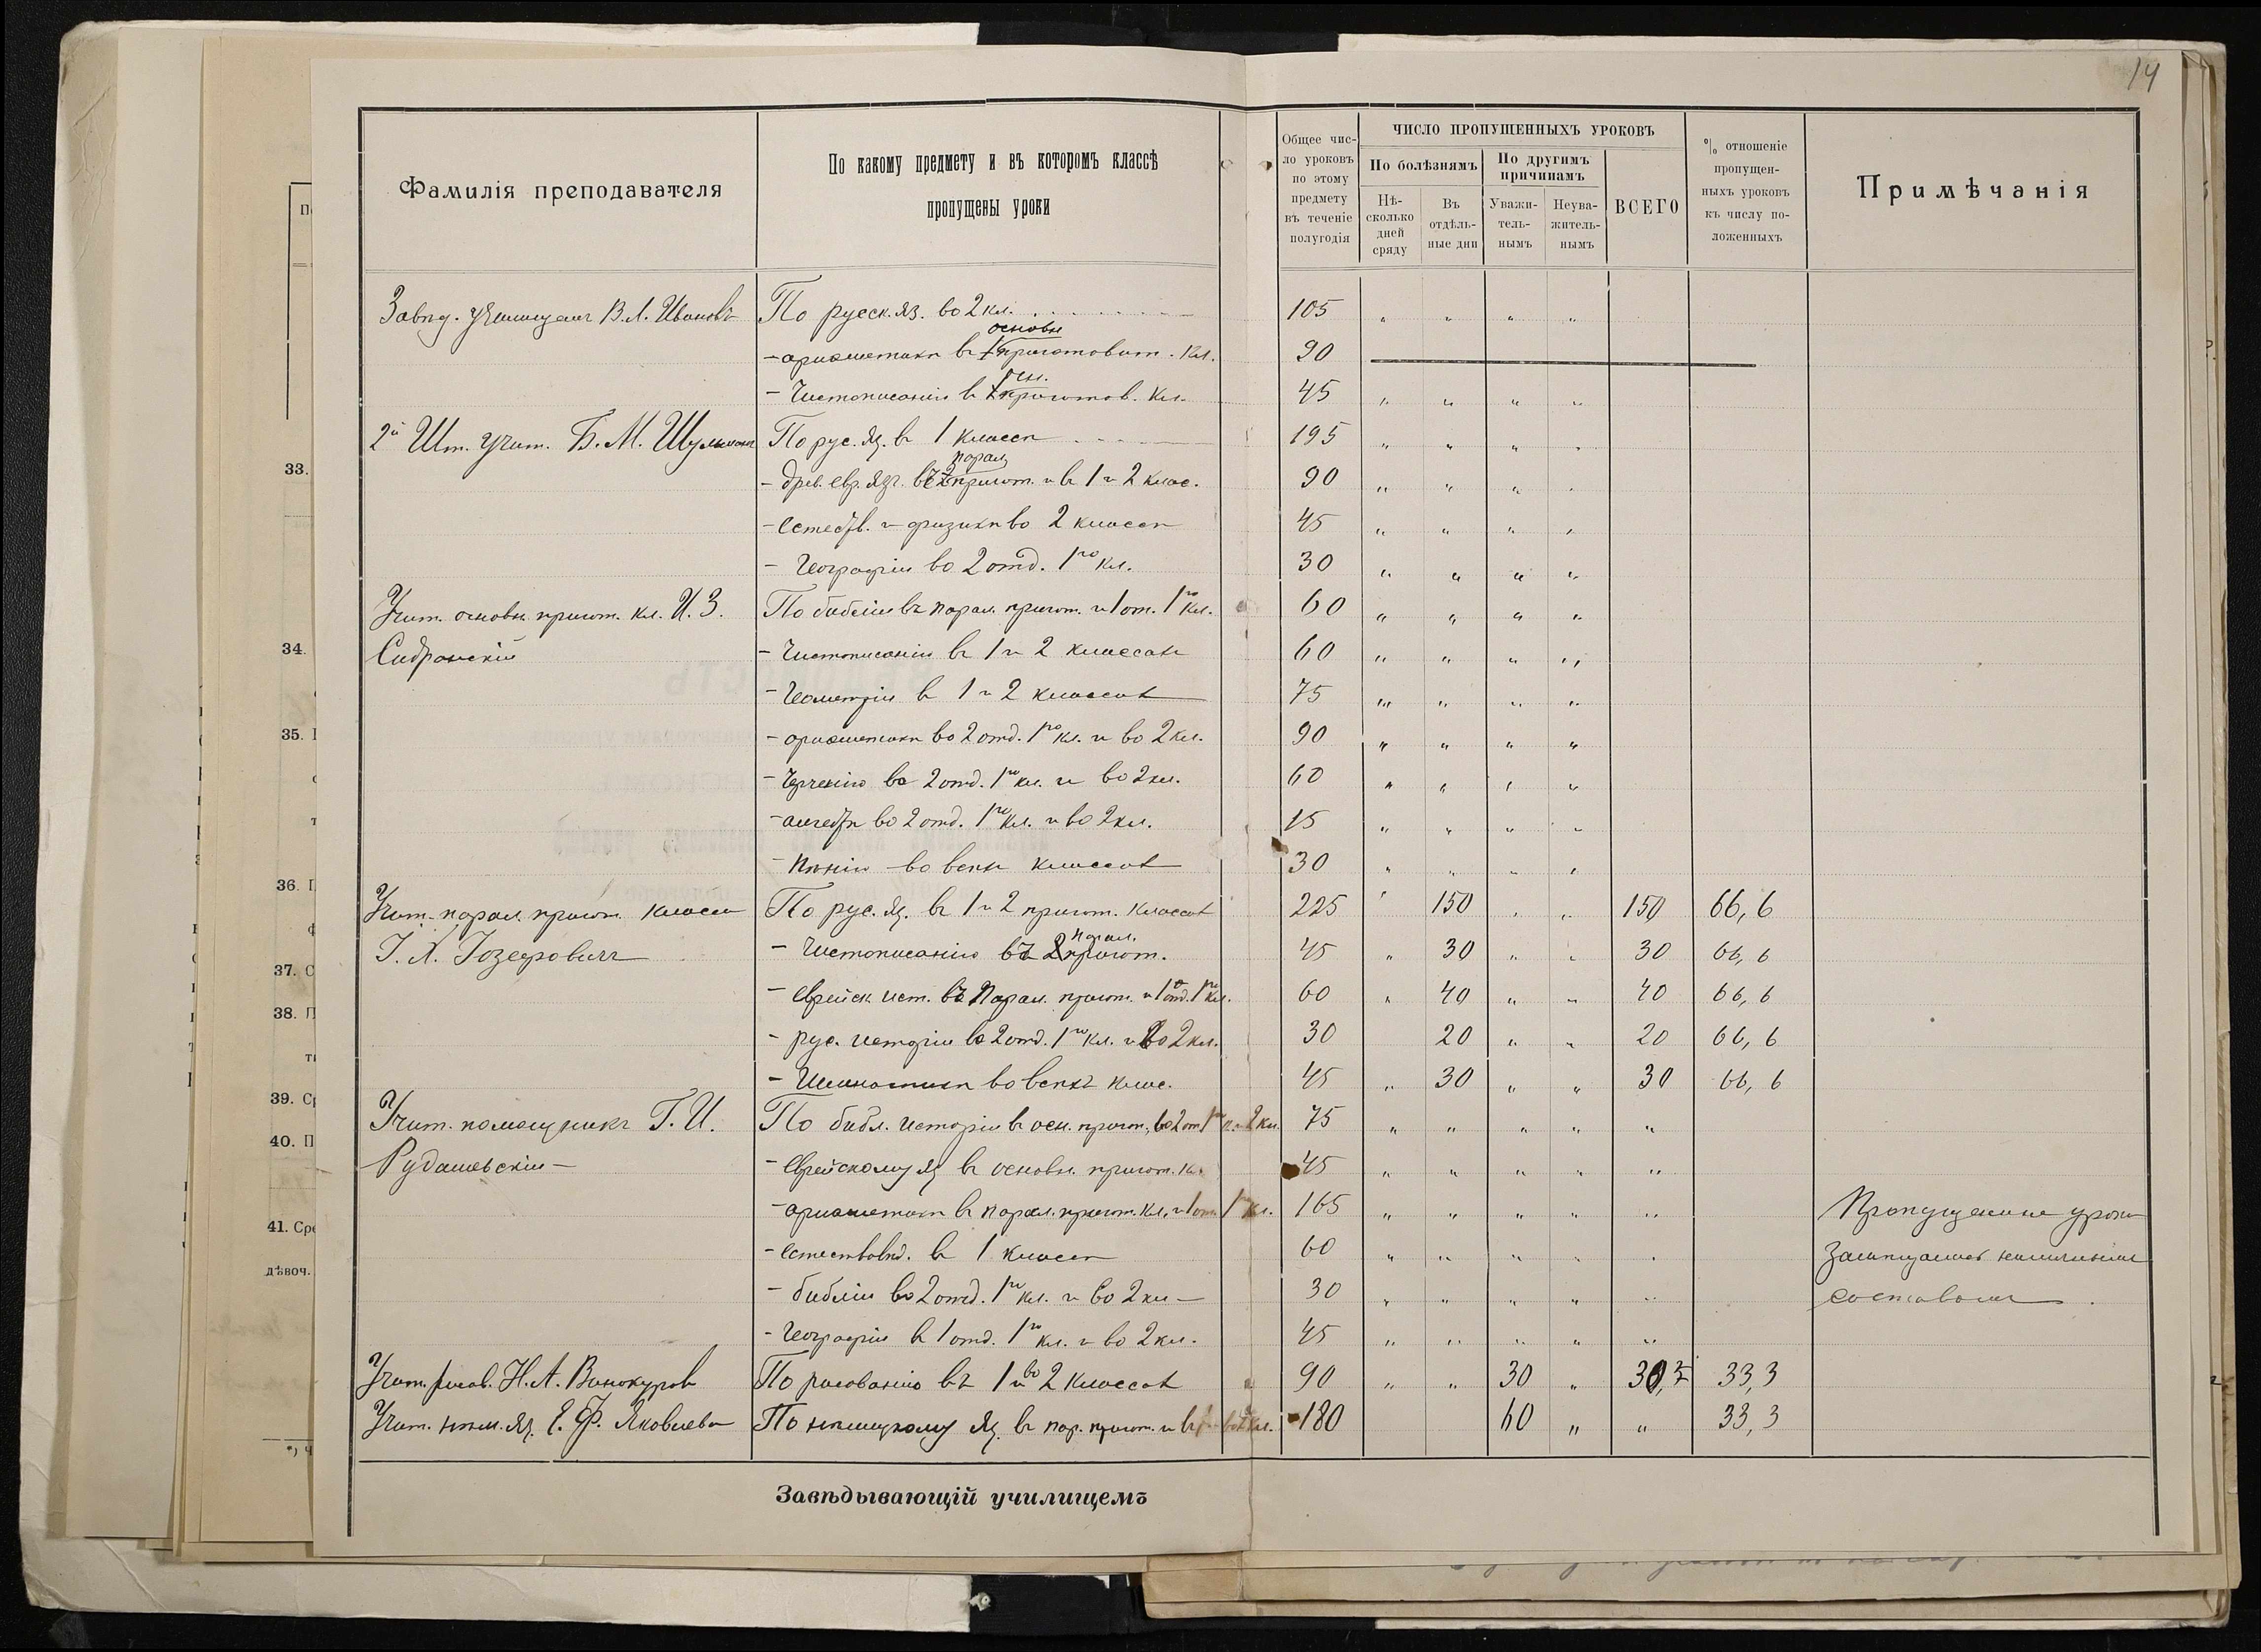 14
Фамилія преподавателя
По какому предмету и въ которомъ классѣ
пропущены уроки
Общее чис-
ло уроковъ
по этому
предмету
въ теченіе
полугодія
ЧИСЛО ПРОПУЩЕННЫХЪ УРОКОВЪ
По болѣзнямъ
По другимъ
причинамъ
Нѣ-
сколько
дней
сряду
Въ
отдѣль-
ные дни
Уважи-
тель-
нымъ
Неува-
житель-
нымъ
ВСЕГО
% отношеніе
пропущен-
ныхъ уроковъ
къ числу по-
ложенныхъ
Примѣчанія
Завѣд. училищемъ В. Л. Ивановъ По русск. яз. во 2 кл. 105 " " " "
основн
- ариѳметикѣ въ приготовит. кл. 90
осн.
- Чистописанію въ приготов. кл. 45 " " " "
2й Шт. учит. Б. М. Шульман По рус. яз. въ 1 классѣ 195 " " " "
парал
- Древ. евр. яз. въ пригот. и въ 1 и 2 клас. 90 " " " "
- Естеств. и физикѣ во 2 классѣ 45 " " " "
- Географіи во 2 отд. 1го кл. 30 " " " "
Учит. основн. пригот. кл. И. З. По библіи въ парал. пригот. и 1 от. 1го кл. 60 " " " "
- Чистописанію въ 1 и 2 классахъ 60 " " " "
- Геометріи въ 1 и 2 классахъ 75 " " " "
- ариѳметикѣ во 2 отд. 1го кл. и во 2 кл. 90 " " " "
- Черченію во 2 отд. 1го кл. и во 2 кл. 60 " " " "
- алгебрѣ во 2 отд. 1го кл. и во 2 кл. 15 " " " "
- Пѣнію во всѣхъ классахъ 30 " " " "
Учит. парал. пригот. класса По рус. яз. въ 1 и 2 пригот. классахъ 225 " 150 " " 150 66,6
парал.
І. Х. Іозефовичъ - Чистописанію въ пригот. 45 " 30 " " 30 66,6
- Еврейск. ист. въ парал. пригот. и 1 отд. 1го кл. 60 " 40 " " 40 66,6
- рус. исторіи во 2 отд. 1го кл. и во 2 кл. 30 20 " " 20 66,6
- Гимнастикѣ во всѣхъ клас. 45 " 30 " " 30 66,6
Учит. помощникъ Г. И. По библ. исторіи въ осн. пригот., во 2 от. 1го к. и 2 кл. 75 " " " " "
Рудашевскій - Еврейскому яз. въ основн. пригот. кл. 45 " " " " "
- ариѳметикѣ въ парал. пригот. кл. и 1 от. 1го кл. 165 " " " " " Пропущенные уроки
- Естествовѣд. въ 1 классѣ 60 " " " " " замѣщались наличнымъ
- библіи во 2 отд. 1го кл. и во 2 кл 30 " " " " " составомъ.
- Географіи въ 1 отд. 1го кл. и во 2 кл. 45 " " " " "
Учит. рисов. Н. А. Винокуров По рисованію въ 1 и во 2 классахъ 90 " " 30 " 33,3
Учит. нѣм. яз. Е. Ф. Яковлева По нѣмецкому яз. въ пар. пригот. и въ кл. 180 60 " " 33,3
Завѣдывающій училищемъ
33.
34.
35.
36. П
37. С
38. П
39. Ср
40. П
41. Сре
дѣвоч.